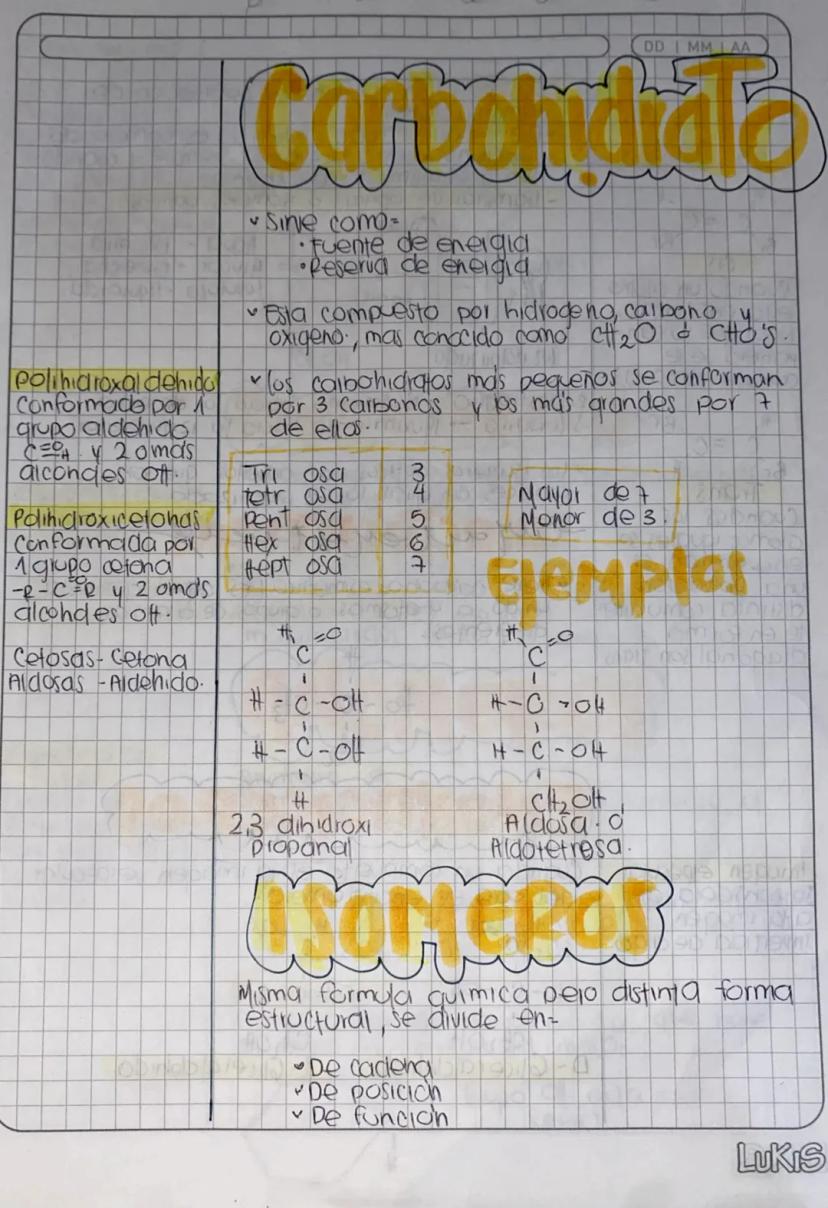 DD | MM | AA
Carbohidrato
sirve como=
• Fuente de energia
• Reserva de energia
Esta compuesto por hidrogeno, carbono y
oxigeno, mas conocido como CH2O ó CHO'S.
los carbohidratos más pequeños se conforman
por 3 carbonos y los más grandes por 7
de ellos.
Polihidroxialdehido
conformado por 1
grupo aldehido
C=OH y 2 o más
alcoholes OH.
Polihidroxicetonas
conformada por
1 grupo cetona
-R-C=R y 2 o más
alcoholes OH.
Cetosas- Cetona
Aldosas -Aldehido.
Tri osa 3
tetr osa 4
Pent osa 5
Hex osa 6
Hept osa 7
Mayor de 7
Menor de 3.
Ejemplos
H =O
C
H - C - OH
H - C - OH
H
2,3 dihidroxi
propanal
H =O
C
H - C - OH
H - C - OH
CH2OH
Aldosa. O
Aldotetrosa.
ISOMEROS
Misma formula quimica pero distinta forma
estructural, se divide en=
De cadena
De posición
De función
LuKiS